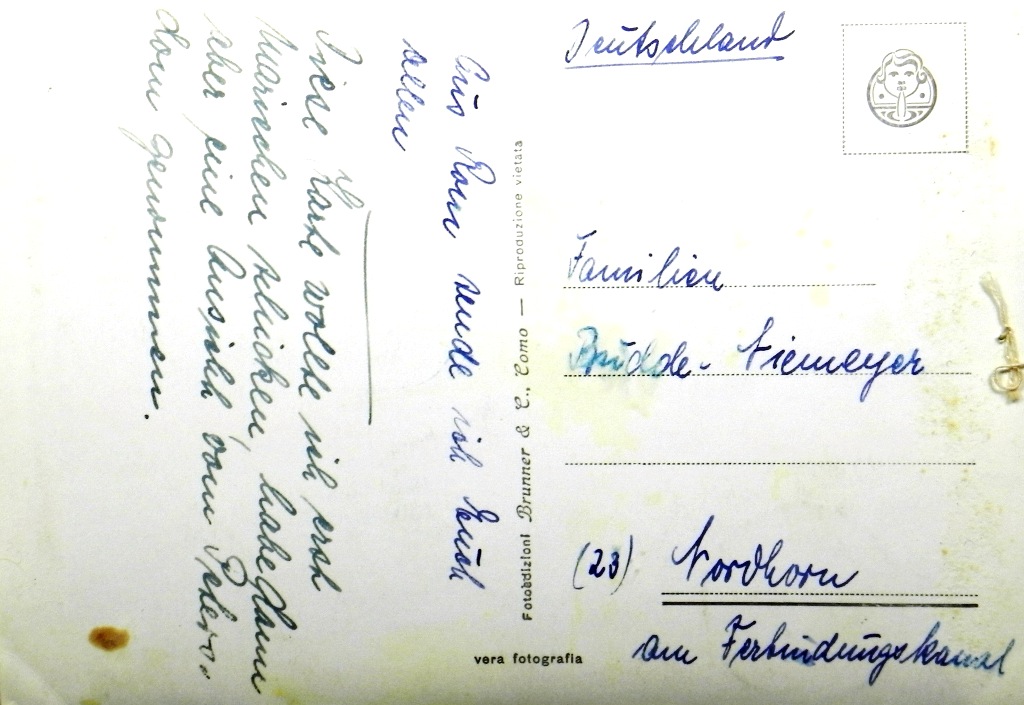 Aus Rom sende ich Euch
allen
Diese Karte wollte ich erst
Mariechen schicken, habe dann
aber eine Ansicht vom Peters-
dom genommen.
Fotoedizioni Brunner & C., Como — Riproduzione vietata
vera fotografia
Deutschland
Familien
Budde-Niemeyer
(23) Nordhorn
am Verbindungskanal